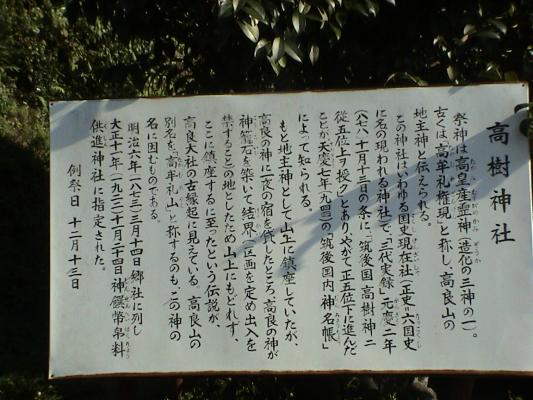 高樹神社
祭神は高皇産霊神(造化の三神の一)。
古くは高牟礼権現と称し、高良山の
地主神と伝えられる。
この神社はいわゆる国史現在社(正史・六国史
に名の現われる神社)で、「三代実録」元慶二年
(八七八)十一月十三日の条に「筑後国高樹神ニ
従五位上ヲ授ク」とあり、やがて正五位下に進んだ
ことが天慶七年(九四四)の「筑後国内神名帳」
によって知られる。
もと地主神として山上に鎮座していたが、
高良の神に一夜の宿を貸したところ、高良の神が
神籠石を築いて結界(区画を定め出入を
禁ずること)の地としたため山上にもどれず、
ここに鎮座するに至ったという伝説が、
高良大社の古縁起に見えている。高良山の
別名を「高牟礼山」と称するのも、この神の
名に因むものである。
明治六年(一八七三)三月十四日郷社に列し
大正十一年(一九二二)十一月二十四日神饌幣帛料
供進神社に指定された。
例祭日 十二月十三日